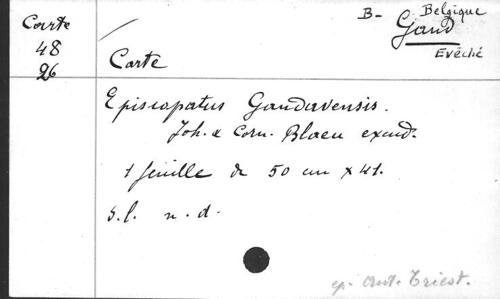 Carte
48
26
B- Belgique
Gand
Evêché
Carte
Episcopatus Gandavensis.
Joh. & Corn. Blaeu excud.
1 feuille de 50 cm x 41.
S.l. n.d.
ep. Ant. Triest.